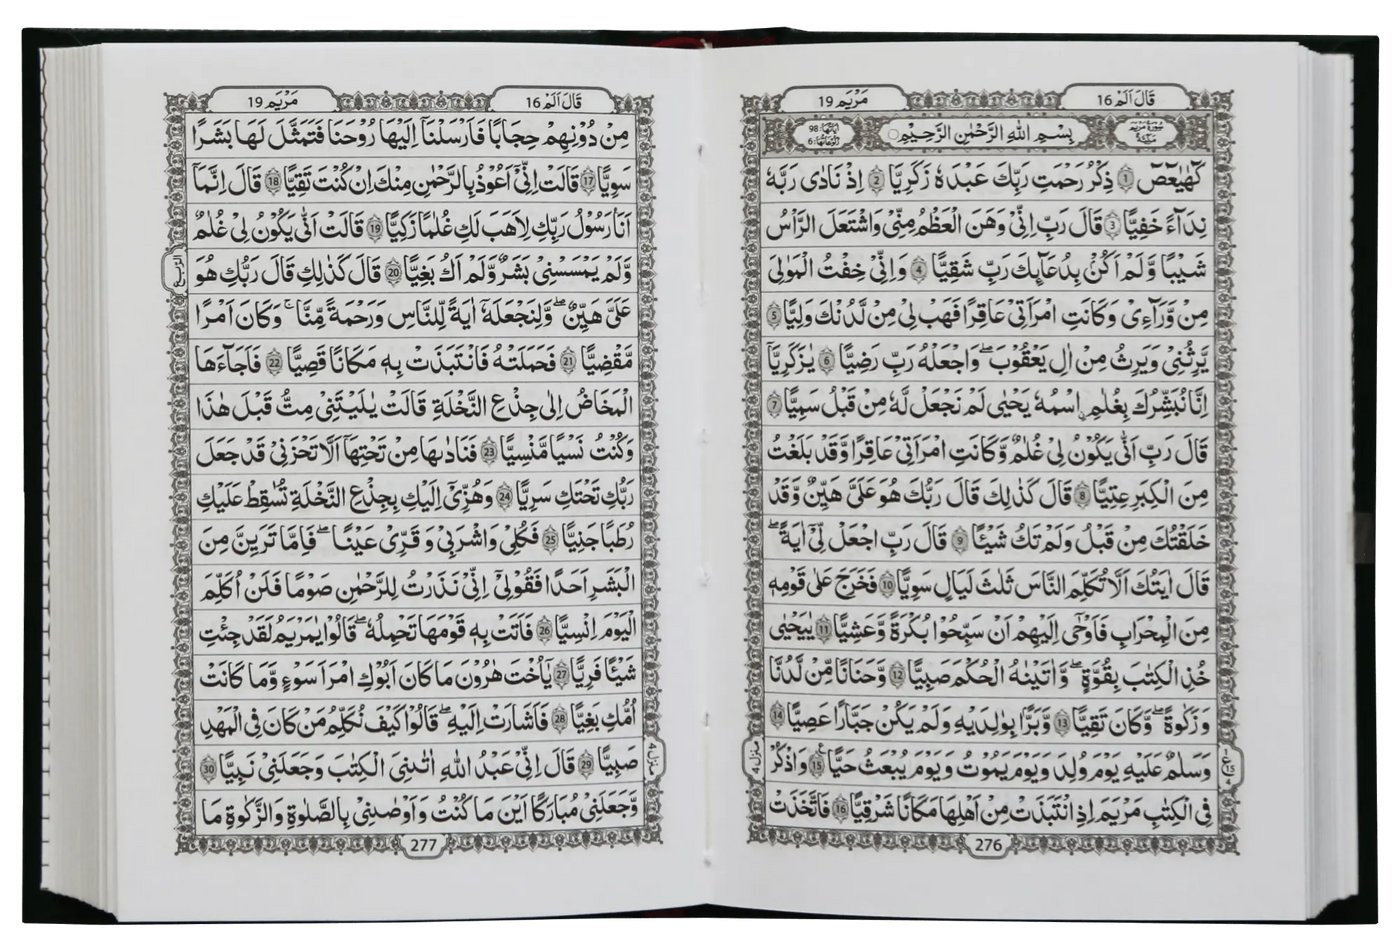 قَالَ اَلَمْ 16
مَرْيَم 19
سورۃ مریم مکیۃ
بِسْمِ اللهِ الرَّحْمٰنِ الرَّحِيْمِ
اٰیَاتُهَا: 98
رُکُوعَاتُهَا: 6
كٓهٰيٰعٓصٓ ۝1 ذِكْرُ رَحْمَتِ رَبِّكَ عَبْدَهٗ زَكَرِيَّا ۝2 اِذْ نَادٰى رَبَّهٗ
نِدَآءً خَفِيًّا ۝3 قَالَ رَبِّ اِنِّىْ وَهَنَ الْعَظْمُ مِنِّىْ وَاشْتَعَلَ الرَّاْسُ
شَيْبًا وَّلَمْ اَكُنْۢ بِدُعَآىِٕكَ رَبِّ شَقِيًّا ۝4 وَاِنِّىْ خِفْتُ الْمَوٰلِىَ
مِنْ وَّرَآءِىْ وَكَانَتِ امْرَاَتِىْ عَاقِرًا فَهَبْ لِىْ مِنْ لَّدُنْكَ وَلِيًّا ۝5
يَّرِثُنِىْ وَيَرِثُ مِنْ اٰلِ يَعْقُوْبَ ۖ وَاجْعَلْهُ رَبِّ رَضِيًّا ۝6 يٰزَكَرِيَّآ
اِنَّا نُبَشِّرُكَ بِغُلٰمِ ۨاسْمُهٗ يَحْيٰى لَمْ نَجْعَلْ لَّهٗ مِنْ قَبْلُ سَمِيًّا ۝7
قَالَ رَبِّ اَنّٰى يَكُوْنُ لِىْ غُلٰمٌ وَّكَانَتِ امْرَاَتِىْ عَاقِرًا وَّقَدْ بَلَغْتُ
مِنَ الْكِبَرِ عِتِيًّا ۝8 قَالَ كَذٰلِكَ قَالَ رَبُّكَ هُوَ عَلَىَّ هَيِّنٌ وَّقَدْ
خَلَقْتُكَ مِنْ قَبْلُ وَلَمْ تَكُ شَيْـًٔا ۝9 قَالَ رَبِّ اجْعَلْ لِّىْٓ اٰيَةً ۖ
قَالَ اٰيَتُكَ اَلَّا تُكَلِّمَ النَّاسَ ثَلٰثَ لَيَالٍ سَوِيًّا ۝10 فَخَرَجَ عَلٰى قَوْمِهٖ
مِنَ الْمِحْرَابِ فَاَوْحٰٓى اِلَيْهِمْ اَنْ سَبِّحُوْا بُكْرَةً وَّعَشِيًّا ۝11 يٰيَحْيٰى
خُذِ الْكِتٰبَ بِقُوَّةٍ ۖ وَاٰتَيْنٰهُ الْحُكْمَ صَبِيًّا ۝12 وَّحَنَانًا مِّنْ لَّدُنَّا
وَزَكٰوةً ۖ وَّكَانَ تَقِيًّا ۝13 وَّبَرًّۢا بِوَالِدَيْهِ وَلَمْ يَكُنْ جَبَّارًا عَصِيًّا ۝14
وَسَلٰمٌ عَلَيْهِ يَوْمَ وُلِدَ وَيَوْمَ يَمُوْتُ وَيَوْمَ يُبْعَثُ حَيًّا ۝15 وَاذْكُرْ
فِى الْكِتٰبِ مَرْيَمَ اِذِ انْتَبَذَتْ مِنْ اَهْلِهَا مَكَانًا شَرْقِيًّا ۝16 فَاتَّخَذَتْ
منزل 4
276
قَالَ اَلَمْ 16
مَرْيَم 19
مِنْ دُوْنِهِمْ حِجَابًا فَاَرْسَلْنَآ اِلَيْهَا رُوْحَنَا فَتَمَثَّلَ لَهَا بَشَرًا
سَوِيًّا ۝17 قَالَتْ اِنِّىْٓ اَعُوْذُ بِالرَّحْمٰنِ مِنْكَ اِنْ كُنْتَ تَقِيًّا ۝18 قَالَ اِنَّمَآ
اَنَا رَسُوْلُ رَبِّكِ لِاَهَبَ لَكِ غُلٰمًا زَكِيًّا ۝19 قَالَتْ اَنّٰى يَكُوْنُ لِىْ غُلٰمٌ
وَّلَمْ يَمْسَسْنِىْ بَشَرٌ وَّلَمْ اَكُ بَغِيًّا ۝20 قَالَ كَذٰلِكِ قَالَ رَبُّكِ هُوَ
عَلَىَّ هَيِّنٌ ۖ وَّلِنَجْعَلَهٗٓ اٰيَةً لِّلنَّاسِ وَرَحْمَةً مِّنَّا ۚ وَكَانَ اَمْرًا
مَّقْضِيًّا ۝21 فَحَمَلَتْهُ فَانْتَبَذَتْ بِهٖ مَكَانًا قَصِيًّا ۝22 فَاَجَآءَهَا
الْمَخَاضُ اِلٰى جِذْعِ النَّخْلَةِ قَالَتْ يٰلَيْتَنِىْ مِتُّ قَبْلَ هٰذَا
وَكُنْتُ نَسْيًا مَّنْسِيًّا ۝23 فَنَادٰىهَا مِنْ تَحْتِهَآ اَلَّا تَحْزَنِىْ قَدْ جَعَلَ
رَبُّكِ تَحْتَكِ سَرِيًّا ۝24 وَهُزِّىْٓ اِلَيْكِ بِجِذْعِ النَّخْلَةِ تُسٰقِطْ عَلَيْكِ
رُطَبًا جَنِيًّا ۝25 فَكُلِىْ وَاشْرَبِىْ وَقَرِّىْ عَيْنًا ۖ فَاِمَّا تَرَيِنَّ مِنَ
الْبَشَرِ اَحَدًا فَقُوْلِىْٓ اِنِّىْ نَذَرْتُ لِلرَّحْمٰنِ صَوْمًا فَلَنْ اُكَلِّمَ
الْيَوْمَ اِنْسِيًّا ۝26 فَاَتَتْ بِهٖ قَوْمَهَا تَحْمِلُهٗ ۖ قَالُوْا يٰمَرْيَمُ لَقَدْ جِئْتِ
شَيْـًٔا فَرِيًّا ۝27 يٰٓاُخْتَ هٰرُوْنَ مَا كَانَ اَبُوْكِ امْرَاَ سَوْءٍ وَّمَا كَانَتْ
اُمُّكِ بَغِيًّا ۝28 فَاَشَارَتْ اِلَيْهِ ۖ قَالُوْا كَيْفَ نُكَلِّمُ مَنْ كَانَ فِى الْمَهْدِ
صَبِيًّا ۝29 قَالَ اِنِّىْ عَبْدُ اللهِ اٰتٰىنِىَ الْكِتٰبَ وَجَعَلَنِىْ نَبِيًّا ۝30
وَّجَعَلَنِىْ مُبَارَكًا اَيْنَ مَا كُنْتُ وَاَوْصٰنِىْ بِالصَّلٰوةِ وَالزَّكٰوةِ مَا
الربع
منزل 4
277